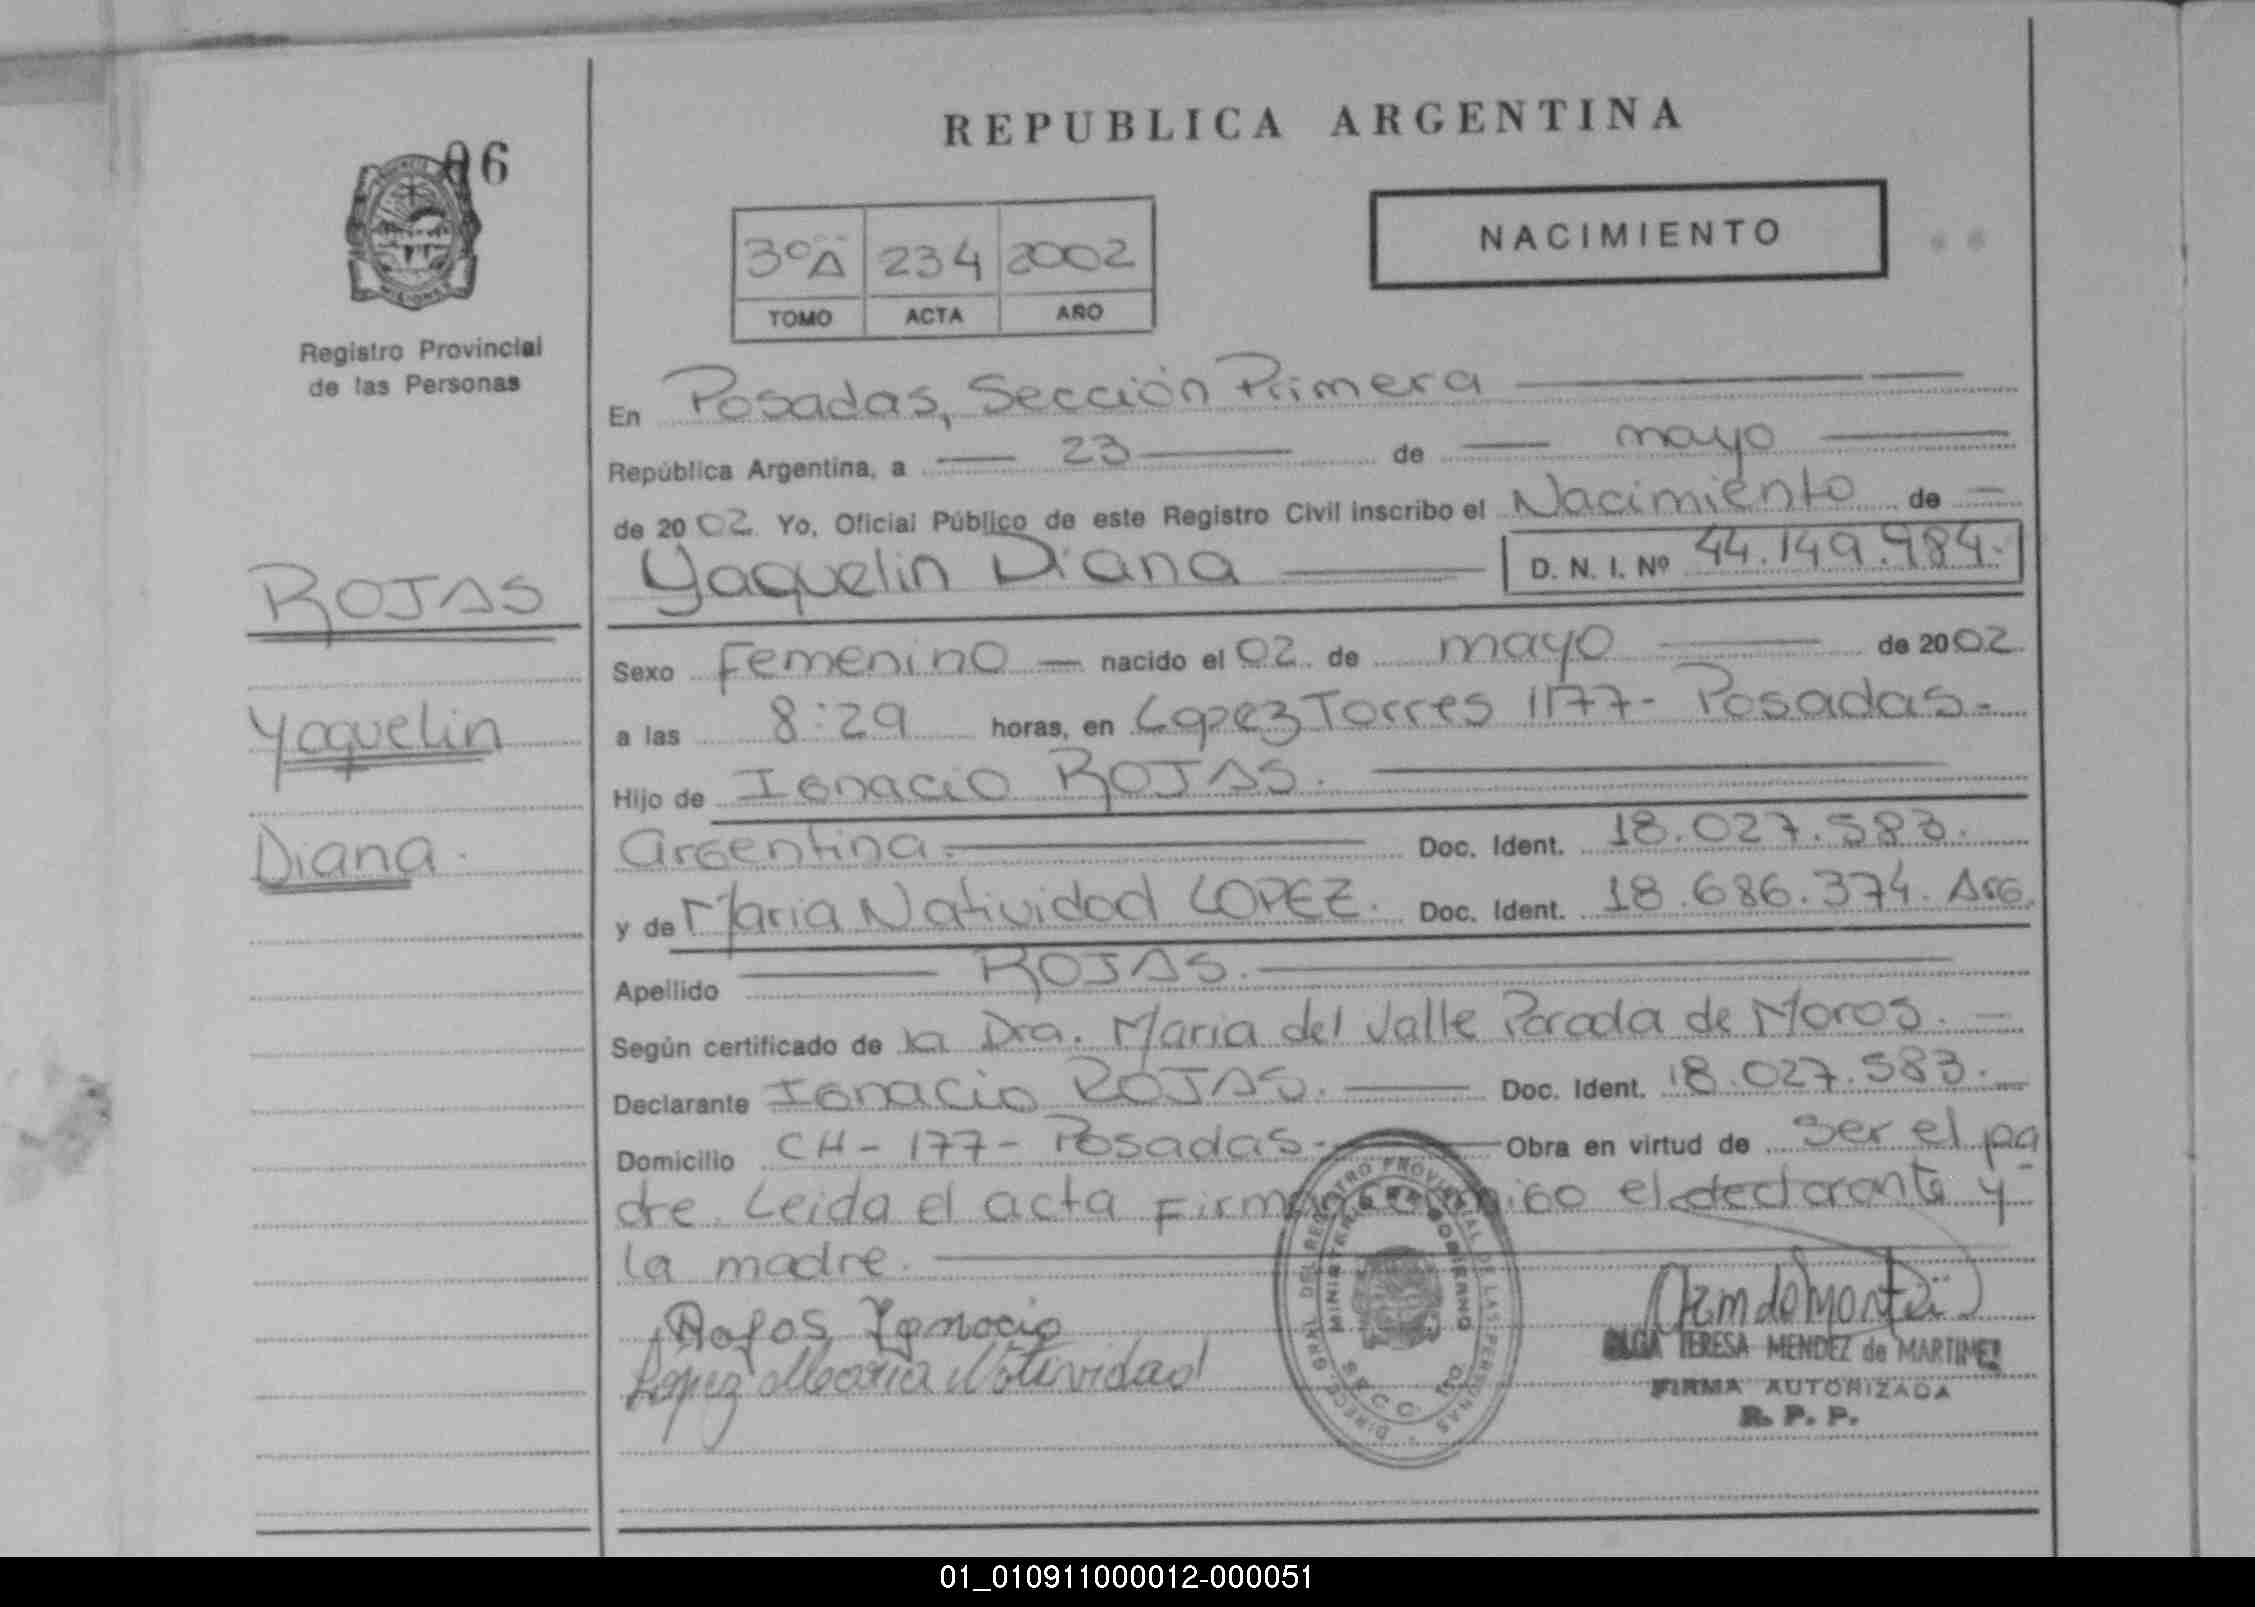 REPUBLICA ARGENTINA
06
NACIMIENTO
3ºA 234 2002
TOMO ACTA AÑO
Registro Provincial
de las Personas
En Posadas, Sección Primera
República Argentina, a 23 de mayo
de 2002. Yo, Oficial Público de este Registro Civil inscribo el Nacimiento de
Yaquelin Diana D. N. I. Nº 44.149.984.
ROJAS
Yaquelin
Diana.
Sexo Femenino nacido el 02 de mayo de 2002.
a las 8:29 horas, en Lopez Torres 1177 - Posadas.
Hijo de Ignacio ROJAS.
Argentina. Doc. Ident. 18.027.583.
y de Maria Natividad LOPEZ. Doc. Ident. 18.686.374. Arg.
Apellido ROJAS.
Según certificado de la Dra. Maria del Valle Parada de Moros.
Declarante Ignacio ROJAS. Doc. Ident. 18.027.583.
Domicilio CH - 177 - Posadas - Obra en virtud de ser el pa
dre. Leida el acta Firman conmigo el declarante y
la madre.
Rojas Ignacio
Lopez Maria Natividad
DIREC. GRAL. DEL REGISTRO PROVINCIAL DE LAS PERSONAS
MINISTERIO DE GOBIERNO
OLGA TERESA MENDEZ de MARTINEZ
FIRMA AUTORIZADA
R. P. P.
01_010911000012-000051